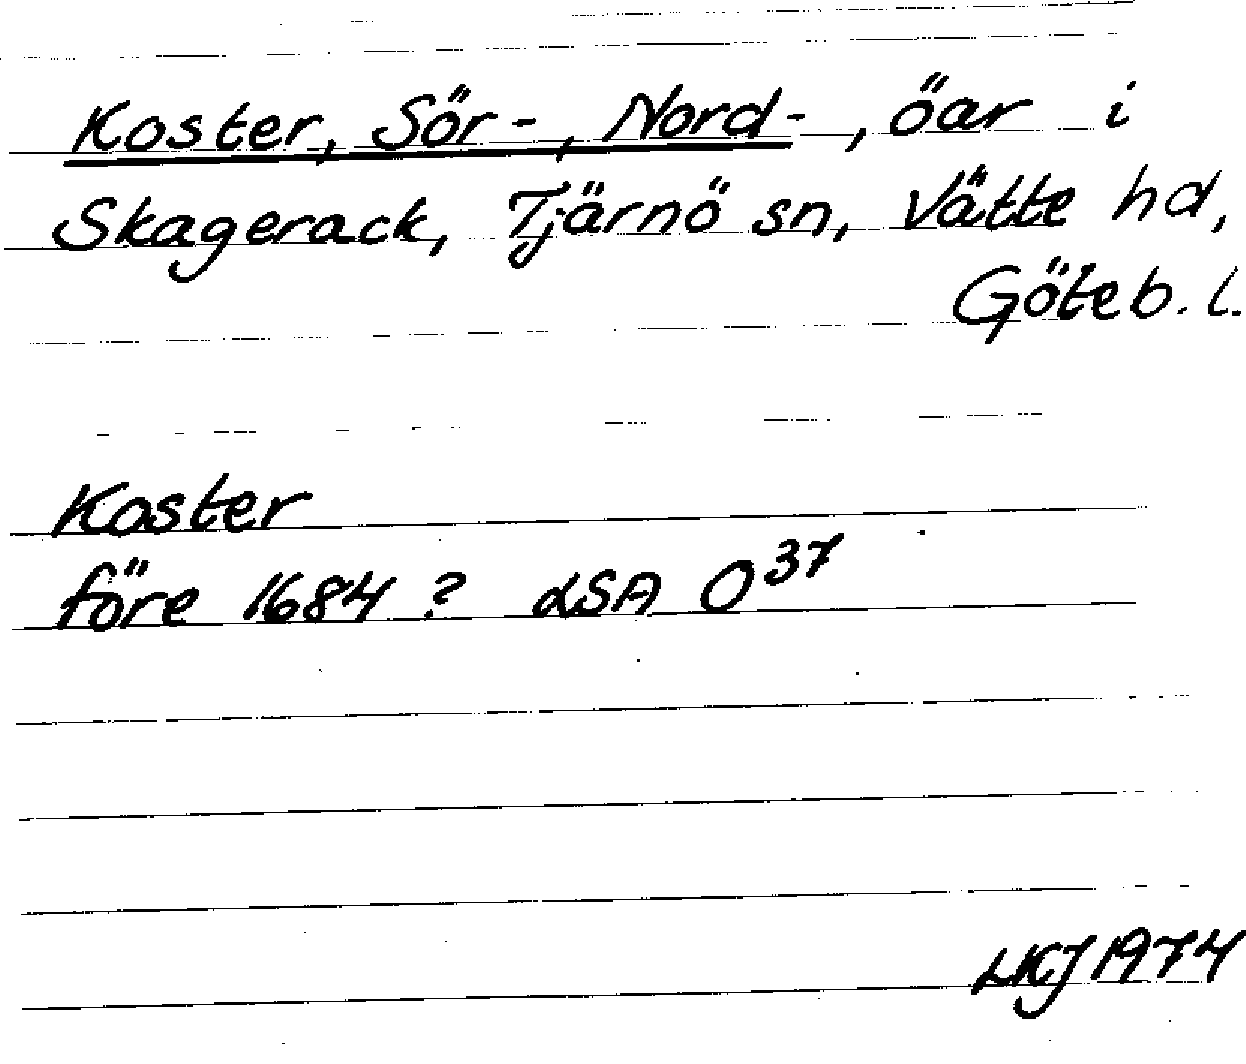 Koster, Sör-, Nord-, öar i
Skagerack, Tjärnö sn, Vätte hd,
Göteb. l.
Koster
före 1684? LSA O³⁷
LKJ 1974